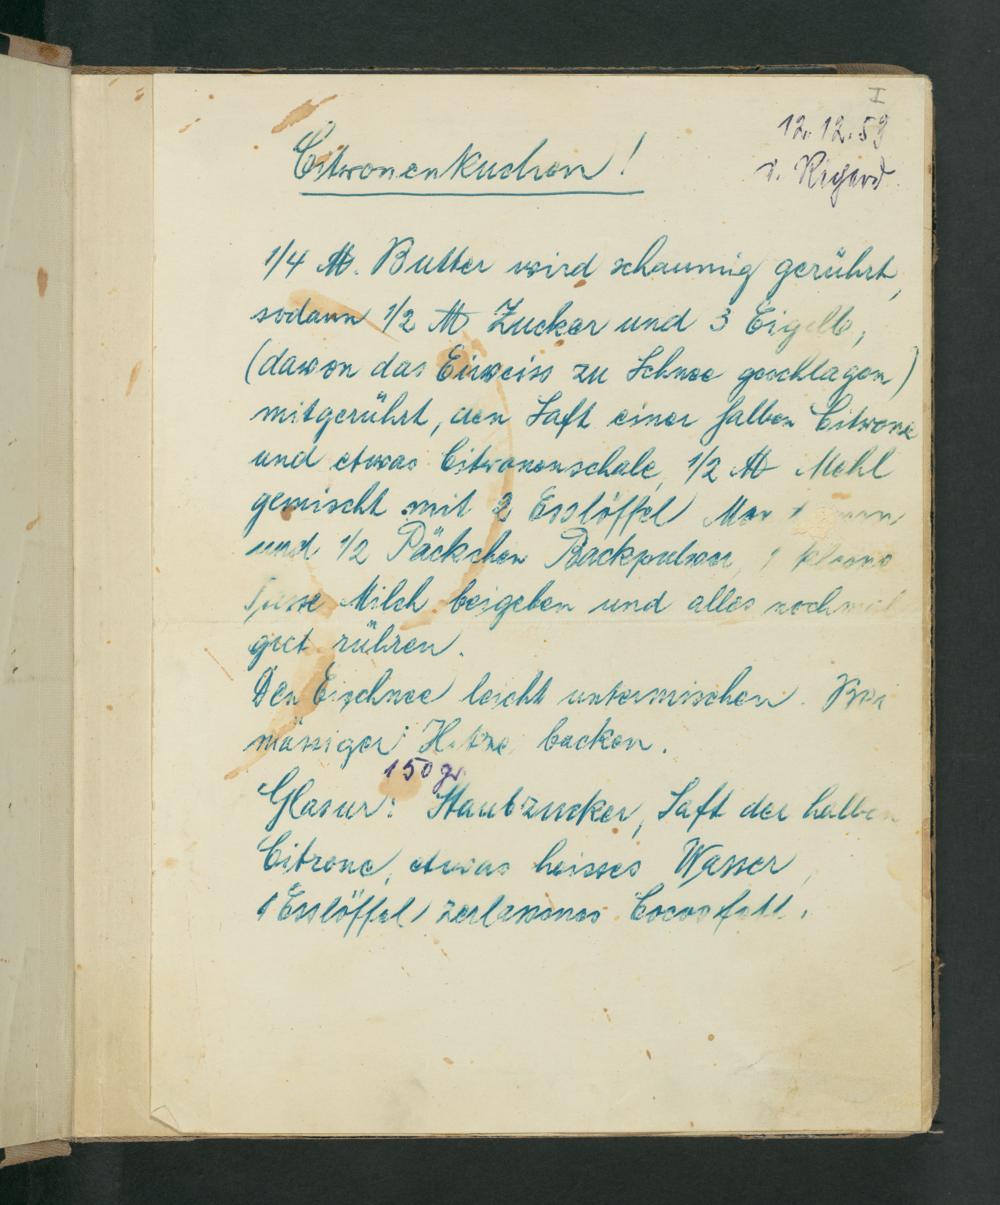 I
12.12.59
v. Rigard
Citronenkuchen!
1/4 ℔. Butter wird schaumig gerührt,
sodann 1/2 ℔ Zucker und 3 Eigelb,
(davon das Eiweiss zu Schnee geschlagen)
mitgerührt, den Saft einer halben Citrone
und etwas Citronenschale, 1/2 ℔ Mehl
gemischt mit 2 Esslöffel
und 1/2 Päckchen Backpulver, 1 kleine
Tasse Milch beigeben und alles nochmal
gut rühren.
Den Eischnee leicht untermischen. Bei
mässiger Hitze backen.
150 gr.
Glasur: Staubzucker, Saft der halben
Citrone, etwas heisses Wasser,
1 Esslöffel zerlassenes Cocosfett.